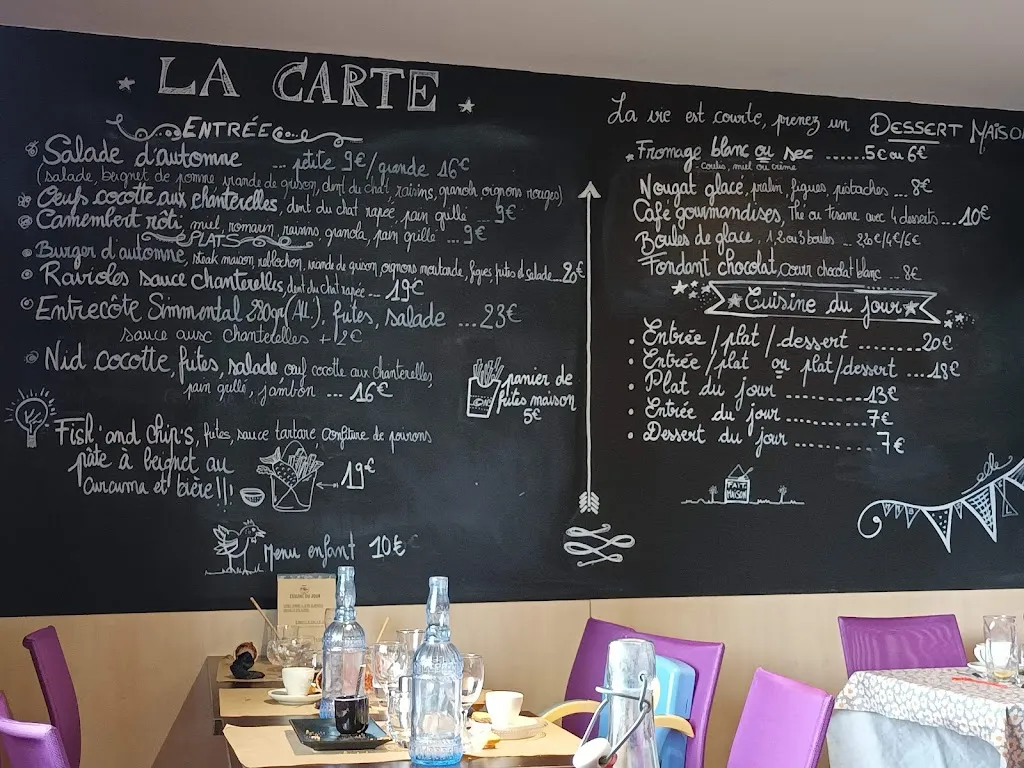 LA CARTE
ENTRÉE
Salade d'automne ... petite 9€/grande 16€
(salade, beignet de pomme, viande de grison, dent du chat, raisins, granola, oignons rouges)
Œufs cocotte aux chanterelles, dent du chat rapée, pain grillé ... 9€
Camembert rôti, miel, romarin, raisins, granola, pain grillé ... 9€
PLATS
Burger d'automne, steak maison, reblochon, viande de grison, oignons, moutarde, figues, frites et salade ... 20€
Ravioles sauce chanterelles, dent du chat rapée ... 19€
Entrecôte Simmental 280gr (ALL), frites, salade ... 23€
sauce aux chanterelles +2€
Nid cocotte, frites, salade oeuf cocotte aux chanterelles
pain grillé, jambon ... 16€
panier de
frites maison
5€
Fish'and chip's, frites, sauce tartare, confiture de poivrons
pâte à beignet au
curcuma et bière!!!
19€
Menu enfant 10€
La vie est courte, prenez un DESSERT MAISO
Fromage blanc ou sec ......5€ ou 6€
- Coulis, miel ou crème
Nougat glacé, pralin, figues, pistaches ... 8€
Café gourmandises, Thé ou Tisane avec 4 desserts ... 10€
Boules de glace, 1, 2 ou 3 boules ... 2,20€/4€/6€
Fondant chocolat, coeur chocolat blanc ... 8€
Cuisine du jour
• Entrée / plat / dessert .........20€
• Entrée / plat ou plat/dessert ....18€
• Plat du jour ..........13€
• Entrée du jour ........7€
• Dessert du jour ........ 7€
FAIT
MAISON